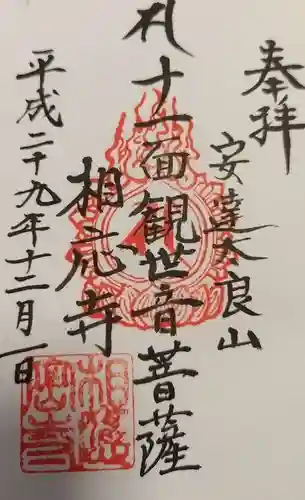 奉拝
安達太良山
札十一面観世音菩薩
相応寺
平成二十九年十二月一日